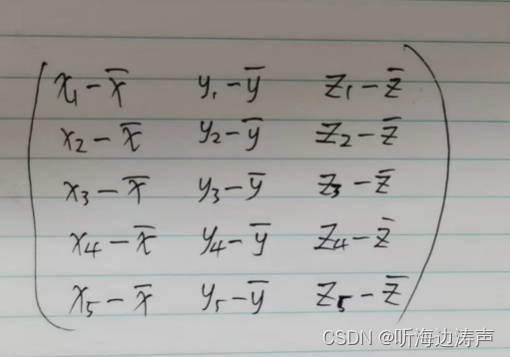 x₁ - x̅ y₁ - y̅ z₁ - z̅
x₂ - x̅ y₂ - y̅ z₂ - z̅
x₃ - x̅ y₃ - y̅ z₃ - z̅
x₄ - x̅ y₄ - y̅ z₄ - z̅
x₅ - x̅ y₅ - y̅ z₅ - z̅
CSDN @听海边涛声